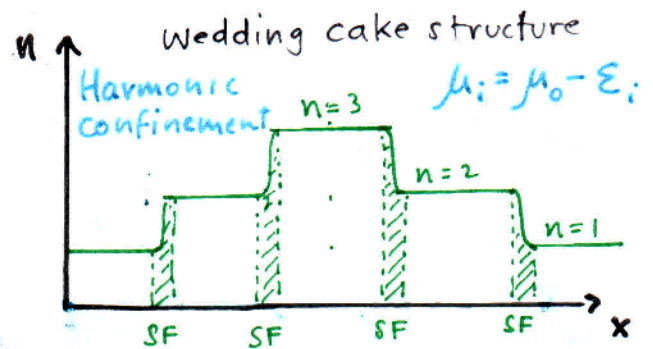 wedding cake structure
n
Harmonic
confinement
μᵢ = μ₀ - Ɛᵢ
n=3
n=2
n=1
SF SF SF SF
x